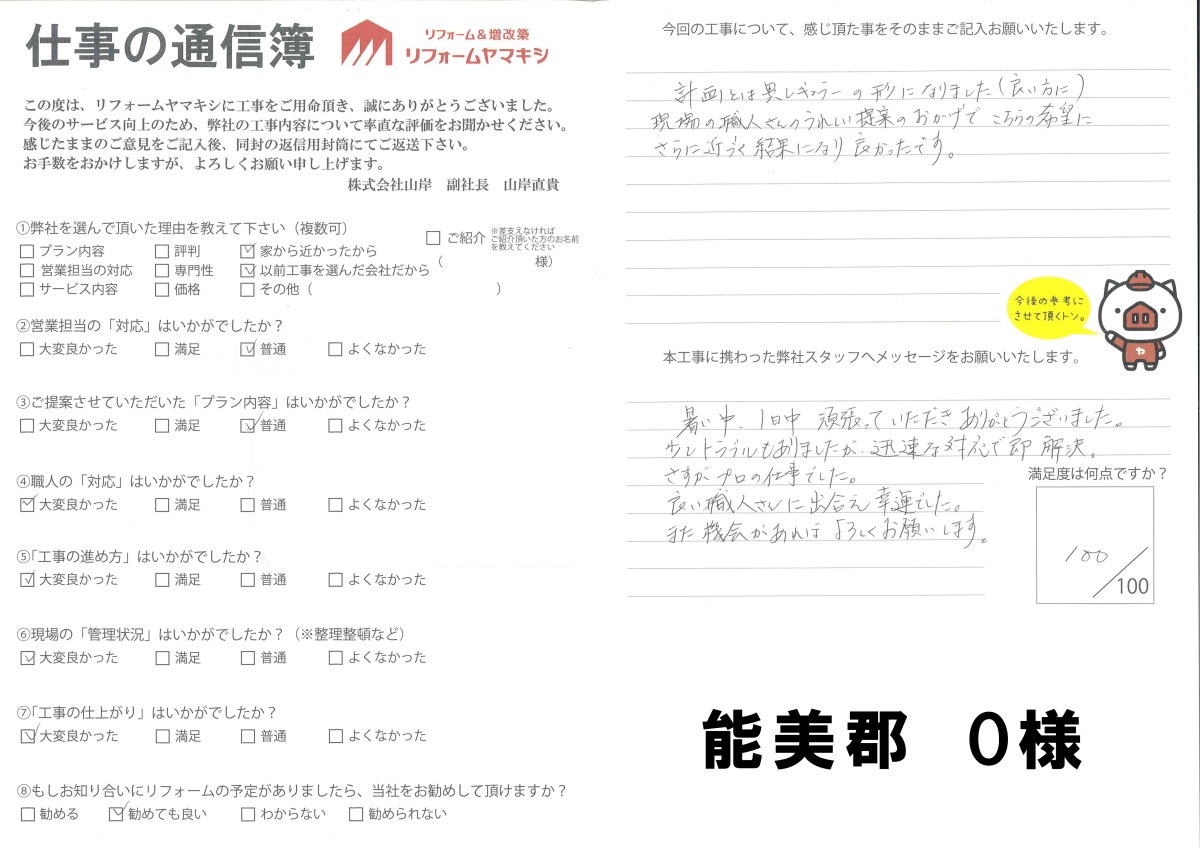 仕事の通信簿
リフォーム&増改築
リフォームヤマキシ
この度は、リフォームヤマキシに工事をご用命頂き、誠にありがとうございました。
今後のサービス向上のため、弊社の工事内容について率直な評価をお聞かせください。
感じたままのご意見をご記入後、同封の返信用封筒にてご返送下さい。
お手数をおかけしますが、よろしくお願い申し上げます。
株式会社山岸 副社長 山岸直貴
①弊社を選んで頂いた理由を教えて下さい（複数可）
□プラン内容 □評判 ☑家から近かったから
□営業担当の対応 □専門性 ☑以前工事を選んだ会社だから
□サービス内容 □価格 □その他（ ）
□ご紹介 ※差支えなければ
ご紹介頂いた方のお名前
を教えてください
（ 様）
②営業担当の「対応」はいかがでしたか？
□大変良かった □満足 ☑普通 □よくなかった
③ご提案させていただいた「プラン内容」はいかがでしたか？
□大変良かった □満足 ☑普通 □よくなかった
④職人の「対応」はいかがでしたか？
☑大変良かった □満足 □普通 □よくなかった
⑤「工事の進め方」はいかがでしたか？
☑大変良かった □満足 □普通 □よくなかった
⑥現場の「管理状況」はいかがでしたか？（※整理整頓など）
☑大変良かった □満足 □普通 □よくなかった
⑦「工事の仕上がり」はいかがでしたか？
☑大変良かった □満足 □普通 □よくなかった
⑧もしお知り合いにリフォームの予定がありましたら、当社をお勧めして頂けますか？
□勧める ☑勧めても良い □わからない □勧められない
今回の工事について、感じ頂た事をそのままご記入お願いいたします。
計画とは異なの形になりました(良い方に)
現場の職人さんのうれしい提案のおかげでこちらの希望に
さらに近づく結果になり良かったです。
今後の参考に
させて頂くトン。
ヤ
本工事に携わった弊社スタッフへメッセージをお願いいたします。
暑い中、1日中頑張っていただきありがとうございました。
少しトラブルもありましたが、迅速な対応で即解決。
さすがプロの仕事でした。
良い職人さんに出合え幸運でした。
また機会があればよろしくお願いします。
満足度は何点ですか？
100/100
能美郡 O様